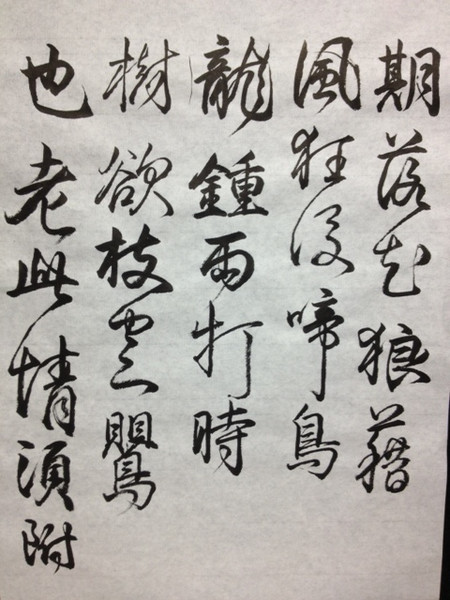 期落花狼藉
風狂後啼鳥
龍鍾雨打時
樹欲枝空鸎
也老此情須附